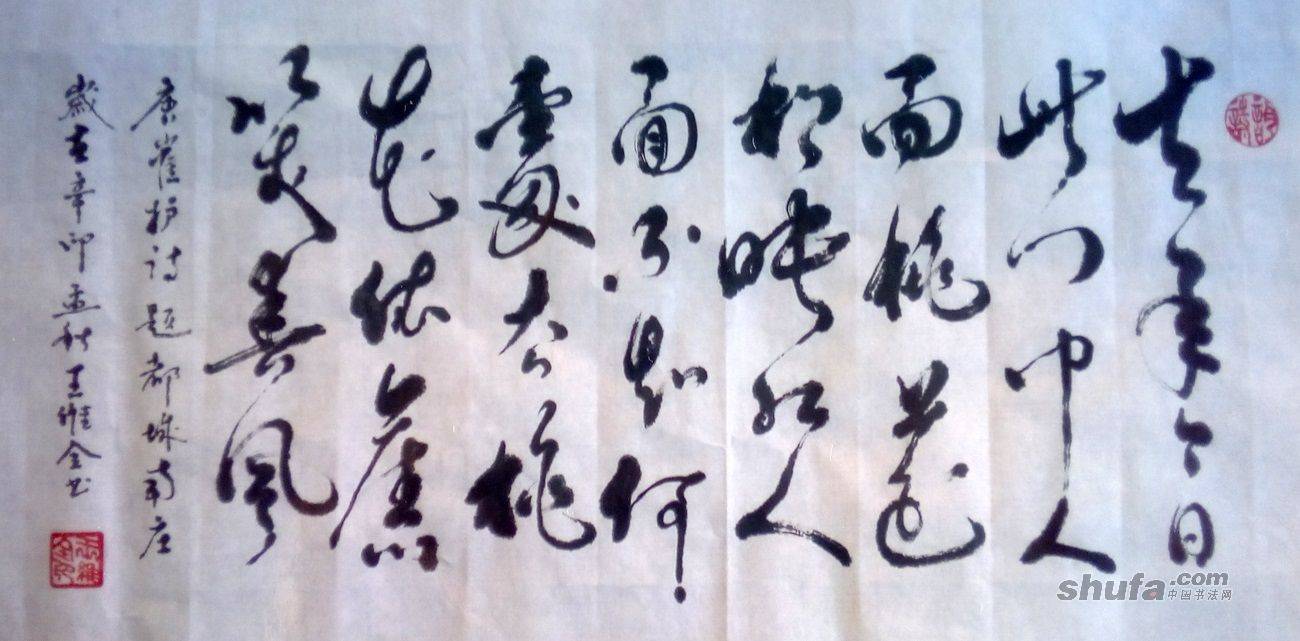 去年今日
此门中人
面桃花
相映红人
面不知何
處去桃
花依舊
笑春風
唐崔护诗题都城南庄
歲在辛卯孟秋王维金书
shufa.com
中国书法网